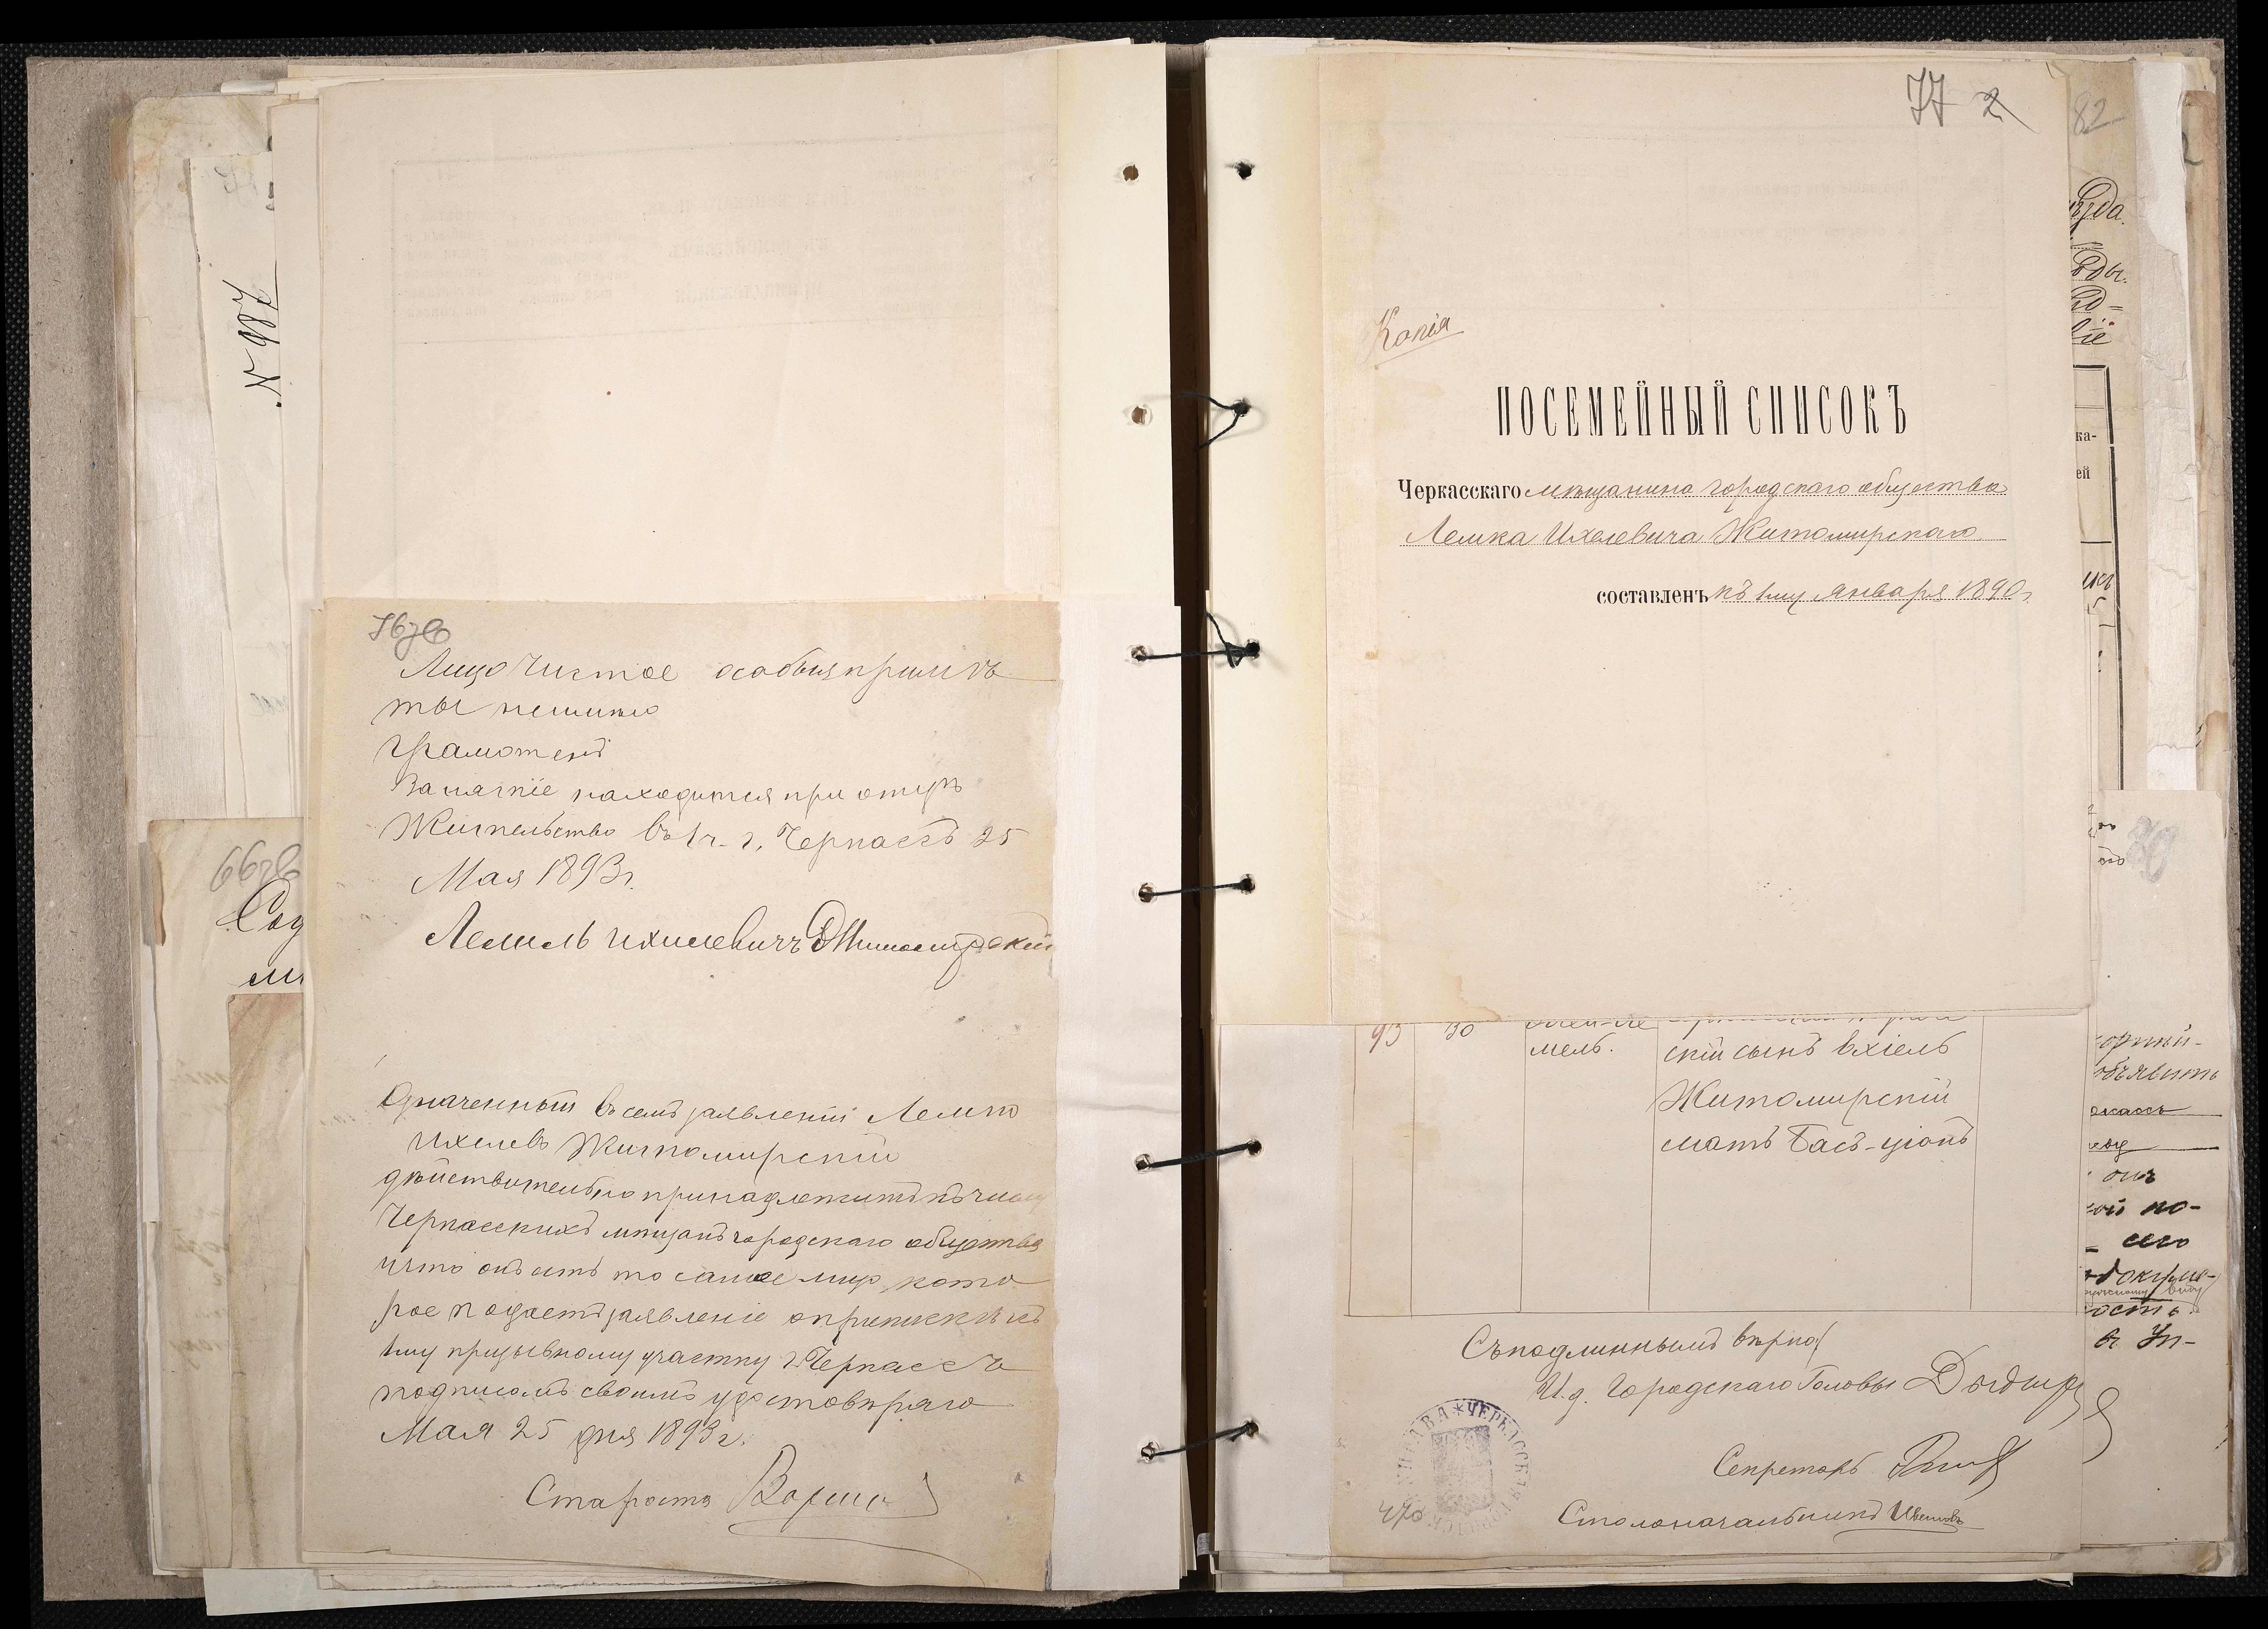 № 987
76 об
Лицо чистое особыя примѣ
ты неимѣю
Грамотенъ
Занятіе находится при отцѣ
Жительство въ 1 ч. г. Черкассъ 25
Мая 1893 г.
Лемель Ихилевичъ Житомирскій
Означенный въ семъ заявленіи Лемко
Ихелевъ Житомирскій
дѣйствительно принадлежитъ къ числу
Черкасскихъ мѣщанъ городскаго общества
и что онъ есть то самое лицо, кото
рое подаетъ заявленіе о припискѣ къ
1му призывному участку г. Черкассъ
подписомъ своимъ удостовѣряю
Мая 25 дня 1893 г.
Староста
66 об
Сод
77 2
Копія
ПОСЕМЕЙНЫЙ СПИСОКЪ
Черкасскаго мѣщанина городскаго общества
Лемка Ихелевича Житомирскаго
составленъ къ 1му Января 1890 г.
93 30
мель. скій сынъ Ехіель
Житомирскій
мать Бась-ціонъ
Съ подлиннымъ вѣрно:
И. д. Городскаго Головы
Секретарь
Столоначальникъ
ЧЕРКАССК
82
ка-
ей
объявить
ой по-
сего
ость.